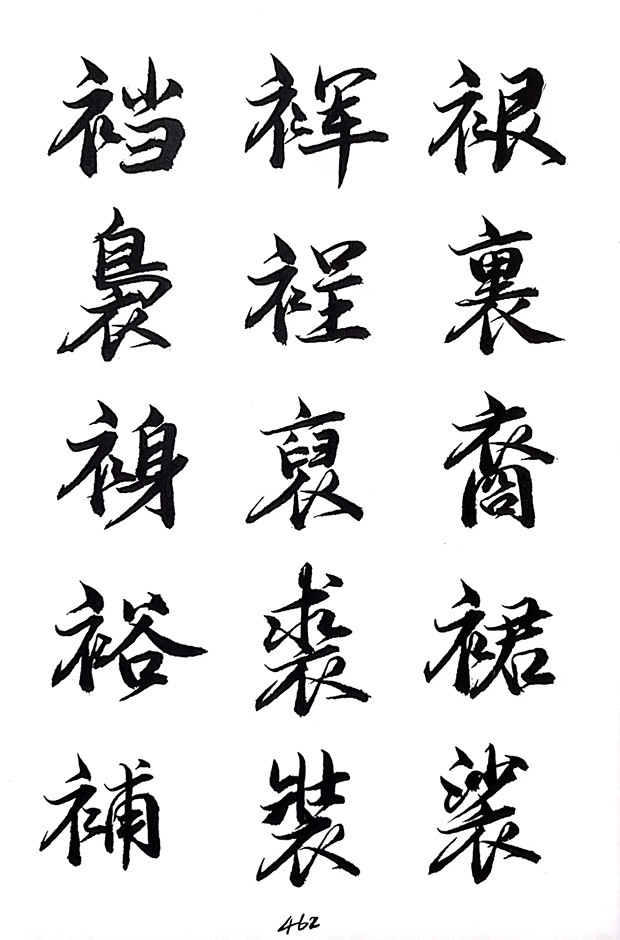 裆 裈 裉
裊 裎 裏
裑 裒 裔
裕 裘 裙
補 裝 裟
462